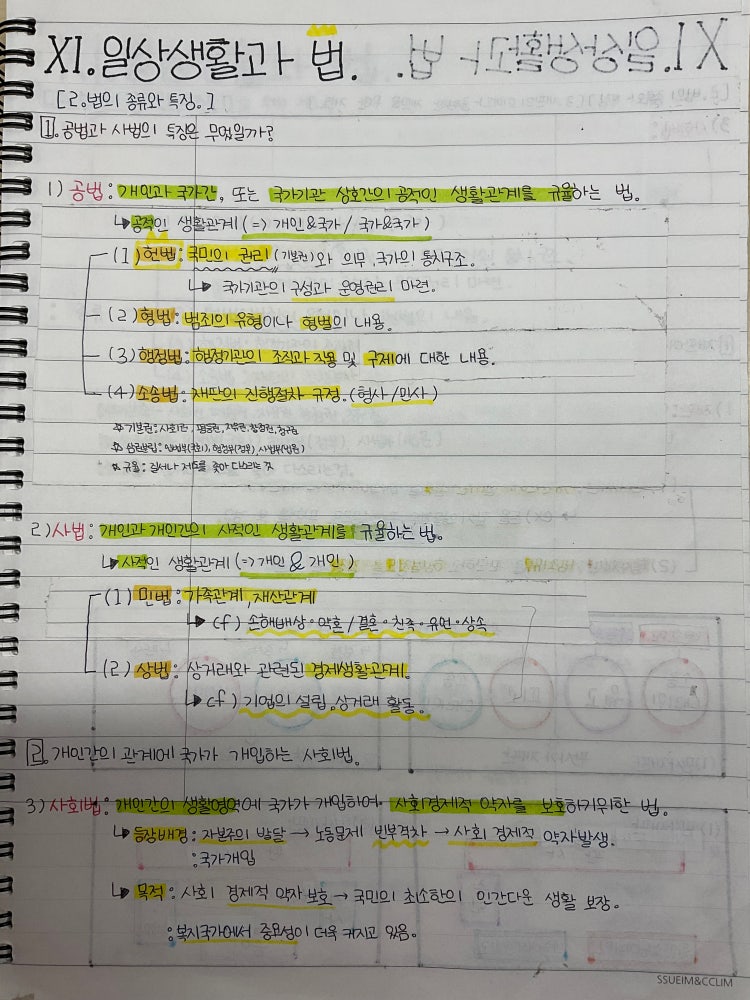 XI. 일상생활과 법.
[2. 법의 종류와 특징.]
1. 공법과 사법의 특징은 무엇일까?
1) 공법: 개인과 국가간, 또는 국가기관 상호간의 공적인 생활관계를 규율하는 법.
↳ 공적인 생활관계 (=> 개인&국가 / 국가&국가)
(1) 헌법: 국민의 권리 (기본권)와 의무, 국가의 통치구조.
↳ 국가기관의 구성과 운영원리 마련.
(2) 형법: 범죄의 유형이나 형벌의 내용.
(3) 행정법: 행정기관의 조직과 작용 및 구제에 대한 내용.
(4) 소송법: 재판의 진행절차 규정. (형사/민사)
☆ 기본권: 사회권, 평등권, 자유권, 참정권, 청구권
☆ 삼권분립: 입법부(국회), 행정부(정부), 사법부(법원)
☆ 규율: 질서나 제도를 좇아 다스리는 것
2) 사법: 개인과 개인간의 사적인 생활관계를 규율하는 법.
↳ 사적인 생활관계 (=> 개인 & 개인)
(1) 민법: 가족관계, 재산관계
↳ cf) 손해배상·약혼/결혼·친족·유언·상속
(2) 상법: 상거래와 관련된 경제생활관계.
↳ cf) 기업의 설립, 상거래 활동.
2. 개인간의 관계에 국가가 개입하는 사회법.
3) 사회법: 개인간의 생활영역에 국가가 개입하여 사회경제적 약자를 보호하기위한 법.
↳ 등장배경: 자본주의 발달 → 노동문제 빈부격차 → 사회 경제적 약자발생.
: 국가개입
↳ 목적: 사회 경제적 약자 보호 → 국민의 최소한의 인간다운 생활 보장.
: 복지국가에서 중요성이 더욱 커지고 있음.
SSUEIM&CCLIM